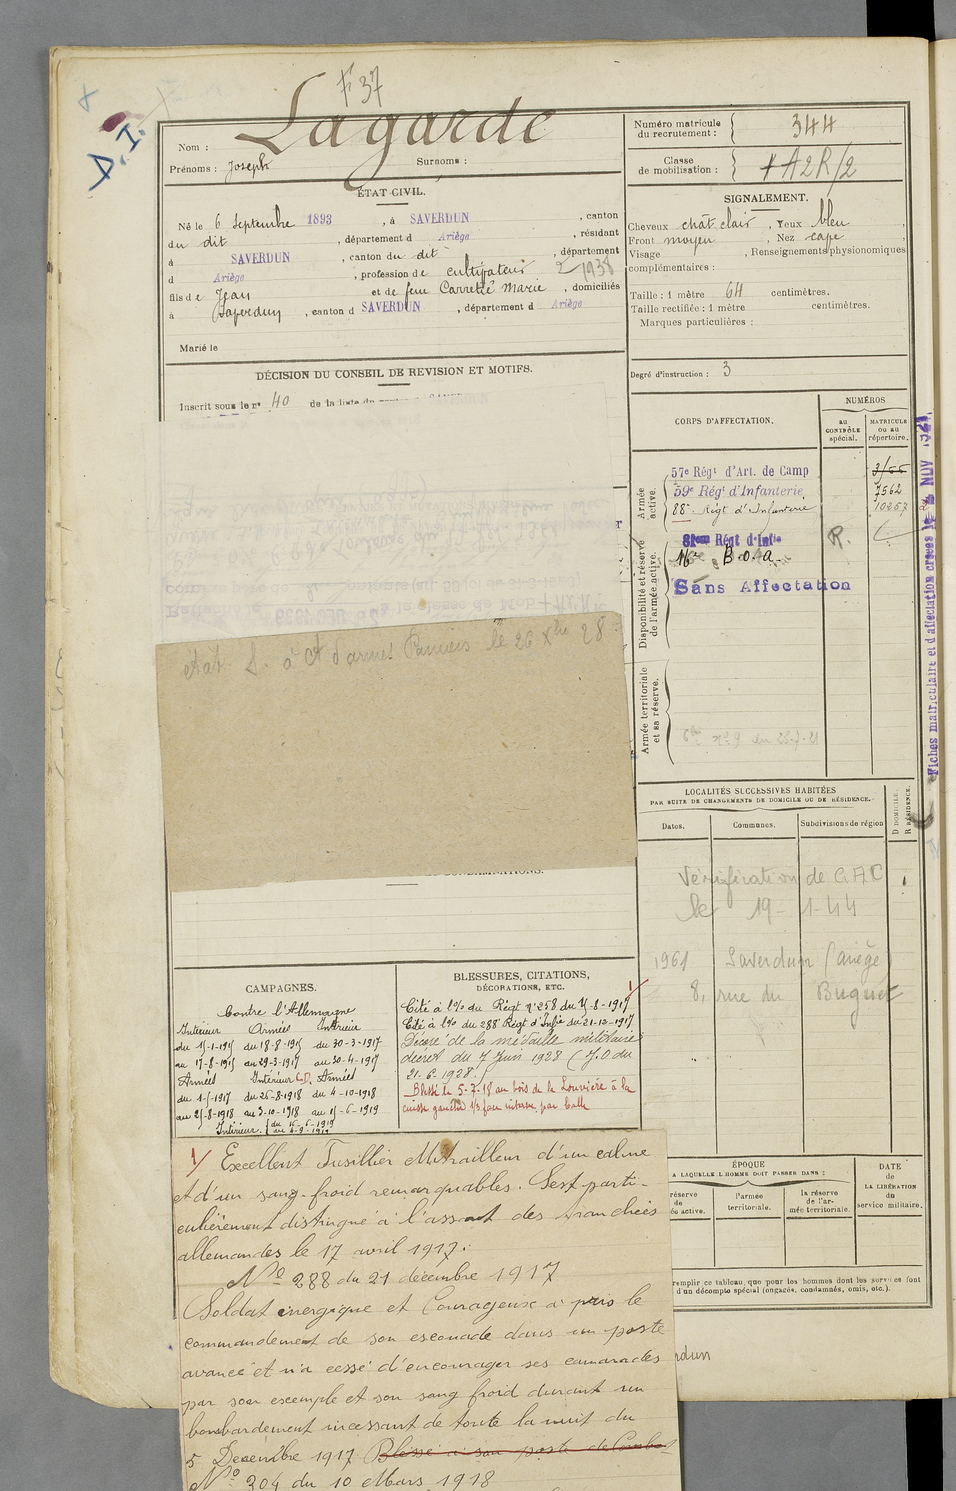 F 37
D.I.
Nom : Lagarde
Prénoms : Joseph Surnoms :
ÉTAT CIVIL.
Né le 6 septembre 1893, à SAVERDUN, canton
du dit, département d Ariège, résidant
à SAVERDUN, canton du dit, département
d Ariège, profession de cultivateur 2 1938
fils de Jean et de feue Carretté Marie, domiciliés
à Saverdun, canton d SAVERDUN, département d Ariège
Marié le
DÉCISION DU CONSEIL DE REVISION ET MOTIFS.
Inscrit sous le n° 40 de la liste du
état S. à Ct d'armes Pamiers le 26 Xbre 28
Numéro matricule du recrutement : 344
Classe de mobilisation : A2R/2
SIGNALEMENT.
Cheveux chât clair, Yeux bleu
Front moyen, Nez cave
Visage , Renseignements physionomiques
complémentaires :
Taille : 1 mètre 64 centimètres.
Taille rectifiée : 1 mètre centimètres.
Marques particulières :
Degré d'instruction : 3
CORPS D'AFFECTATION.
NUMÉROS
au CONTRÔLE spécial.
MATRICULE ou au répertoire.
Armée active.
57e Régt d'Art. de Camp
59e Régt d'Infanterie 7562
88e Régt d'Infanterie 10257
Disponibilité et réserve de l'armée active.
81em Régt d'Infie R.
16e B.o.a.
Sans Affectation
Armée territoriale et sa réserve.
Fiches matriculaire et d'affectation créées le NOV 1921
LOCALITÉS SUCCESSIVES HABITÉES
PAR SUITE DE CHANGEMENTS DE DOMICILE OU DE RÉSIDENCE.
Dates. Communes. Subdivisions de région D DOMICILE. R RÉSIDENCE.
Vérification de CAC
le 19-1-44
1961 Saverdun (ariège
8, rue du Buguet
CAMPAGNES.
Contre l'Allemagne
Intérieur Armées Intérieur
du 15-1-1915 du 18-8-1915 du 30-3-1917
au 17-8-1915 au 29-3-1917 au 30-4-1917
Armées Intérieur C.D. Armées
du 1-5-1917 du 26-8-1918 du 4-10-1918
au 25-8-1918 au 3-10-1918 au 15-6-1919
Intérieur. du 16-6-1919
au 4-9-1919
BLESSURES, CITATIONS,
DÉCORATIONS, ETC.
Cité à l'o/o du Régt n° 258 du 4-8-1917 1/
Cité à l'o/o du 288e Régt d'Infie du 21-12-1917
Décoré de la médaille militaire
décret du 7 Juin 1928 (J.O du
21-6-1928.)
Blessé le 5-7-18 au bois de la Louvière à la
cuisse gauche 1/3 face interne par balle
1/ Excellent Fusillier Mitrailleur d'un calme
et d'un sang-froid remarquables. S'est parti-
culièrement distingué à l'assaut des tranchées
allemandes le 17 avril 1917.
N° 288 du 21 décembre 1917
Soldat énergique et Courageux a pris le
commandement de son escouade dans un poste
avancé et n'a cessé d'encourager ses camarades
par son exemple et son sang froid durant un
bombardement incessant de toute la nuit du
5 Décembre 1917. Blessé à son poste de Combat
N° 304 du 10 Mars 1918
ÉPOQUE
A LAQUELLE L'HOMME DOIT PASSER DANS :
réserve de active.
l'armée territoriale.
la réserve de l'armée territoriale.
DATE de LA LIBÉRATION du service militaire.
remplir ce tableau que pour les hommes dont les services font
d'un décompte spécial (engagés, condamnés, omis, etc.).
rdun